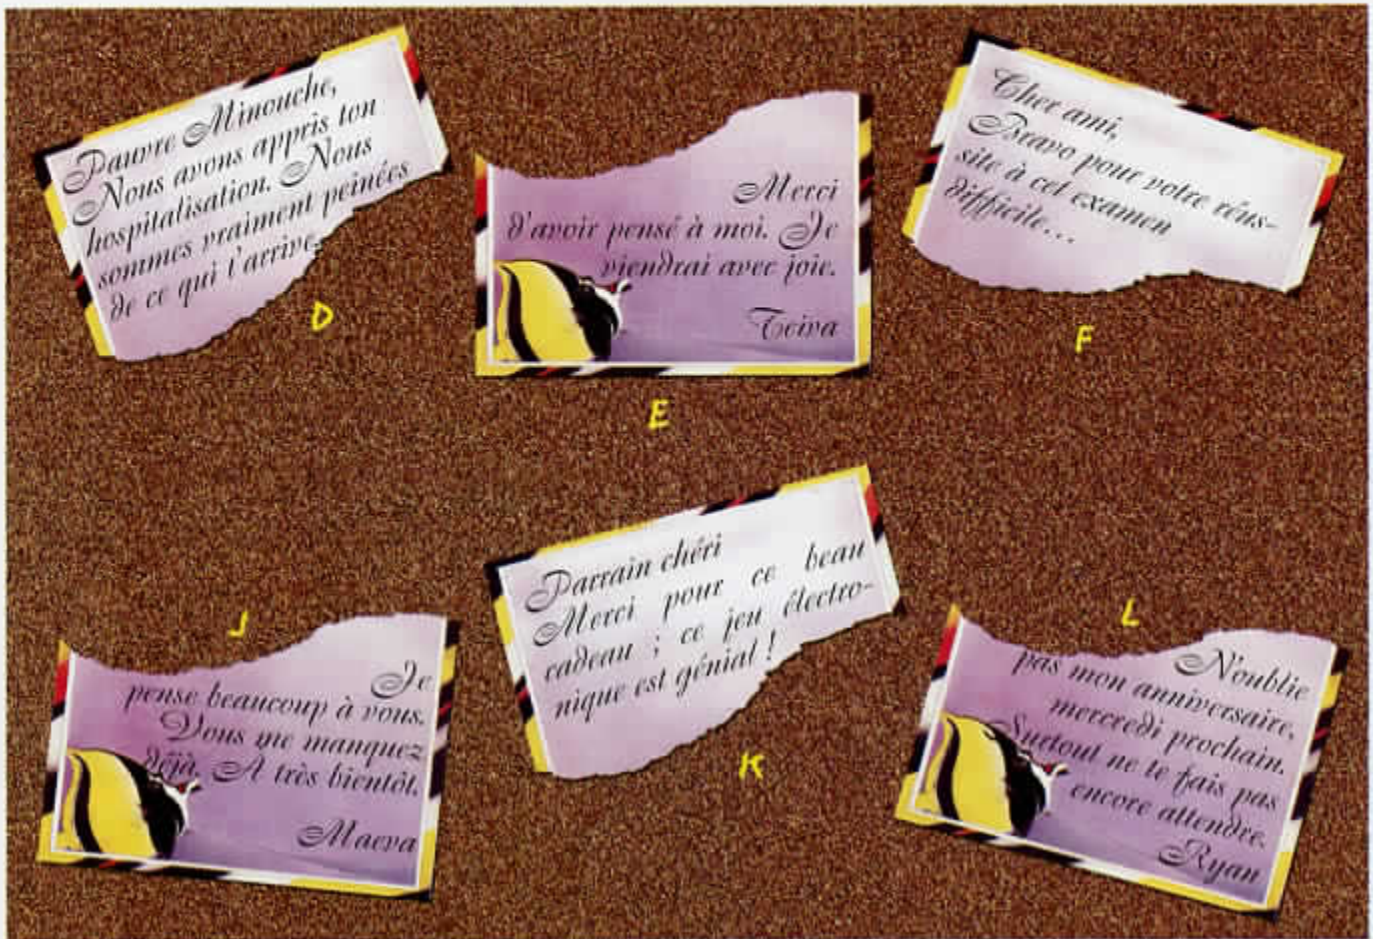 Pauvre Minouche,
Nous avons appris ton
hospitalisation. Nous
sommes vraiment peinées
de ce qui t'arrive.
D
Merci
d'avoir pensé à moi. Je
viendrai avec joie.
Teiva
E
Cher ami,
Bravo pour votre réus-
site à cet examen
difficile...
F
J
Je
pense beaucoup à vous.
Vous me manquez
déjà. A très bientôt.
Maeva
Parrain chéri
Merci pour ce beau
cadeau ; ce jeu électro-
nique est génial !
K
L
N'oublie
pas mon anniversaire,
mercredi prochain.
Surtout ne te fais pas
encore attendre.
Ryan